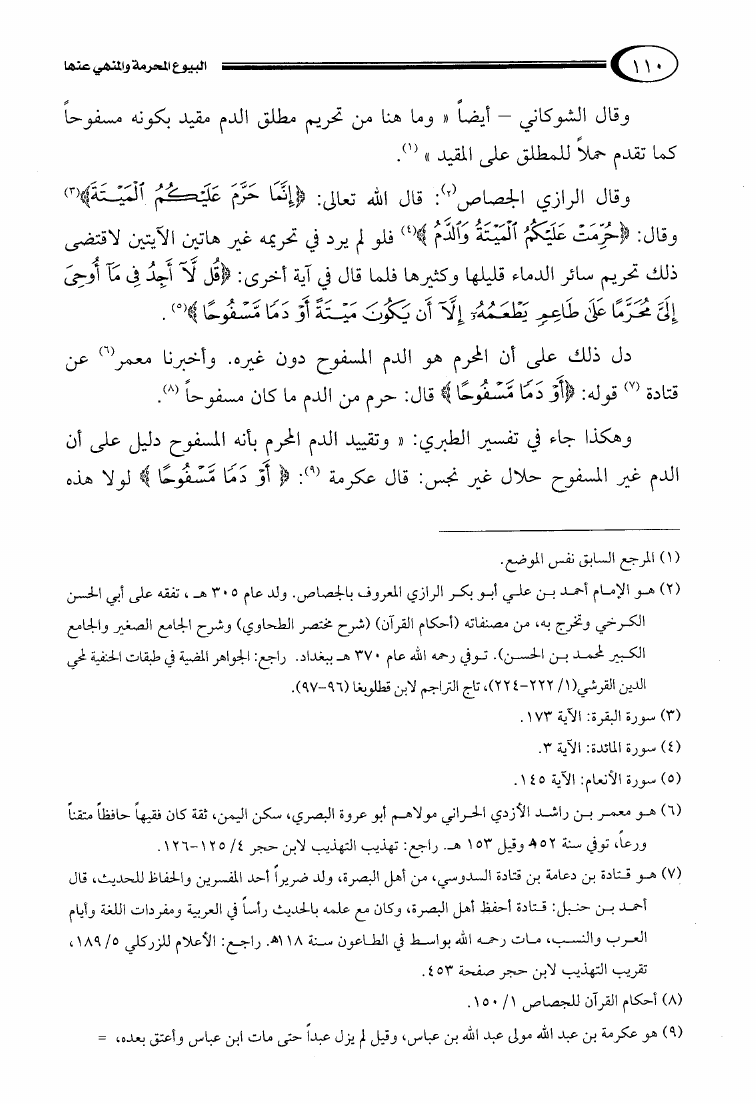 ١١٠ البيوع المحرمة والمنهي عنها
وقال الشوكاني – أيضاً « وما هنا من تحريم مطلق الدم مقيد بكونه مسفوحاً
كما تقدم حملاً للمطلق على المقيد »(١).
وقال الرازي الجصاص(٢): قال الله تعالى: ﴿إِنَّمَا حَرَّمَ عَلَيْكُمُ الْمَيْتَةَ﴾(٣)
وقال: ﴿حُرِّمَتْ عَلَيْكُمُ الْمَيْتَةُ وَالدَّمُ﴾(٤) فلو لم يرد في تحريمه غير هاتين الآيتين لاقتضى
ذلك تحريم سائر الدماء قليلها وكثيرها فلما قال في آية أخرى: ﴿قُل لَّا أَجِدُ فِي مَا أُوحِيَ
إِلَيَّ مُحَرَّمًا عَلَىٰ طَاعِمٍ يَطْعَمُهُ إِلَّا أَن يَكُونَ مَيْتَةً أَوْ دَمًا مَّسْفُوحًا﴾(٥).
دل ذلك على أن المحرم هو الدم المسفوح دون غيره. وأخبرنا معمر(٦) عن
قتادة(٧) قوله: ﴿أَوْ دَمًا مَّسْفُوحًا﴾ قال: حرم من الدم ما كان مسفوحاً(٨).
وهكذا جاء في تفسير الطبري: « وتقييد الدم المحرم بأنه المسفوح دليل على أن
الدم غير المسفوح حلال غير نجس: قال عكرمة(٩): ﴿أَوْ دَمًا مَّسْفُوحًا﴾ لولا هذه
(١) المرجع السابق نفس الموضع.
(٢) هو الإمام أحمد بن علي أبو بكر الرازي المعروف بالجصاص. ولد عام ٣٠٥ هـ، تفقه على أبي الحسن
الكرخي وتخرج به، من مصنفاته (أحكام القرآن) (شرح مختصر الطحاوي) وشرح الجامع الصغير والجامع
الكبير لمحمد بن الحسن). توفي رحمه الله عام ٣٧٠ هـ ببغداد. راجع: الجواهر المضية في طبقات الحنفية لمحي
الدين القرشي(١/ ٢٢٢-٢٢٤)، تاج التراجم لابن قطلوبغا (٩٦-٩٧).
(٣) سورة البقرة: الآية ١٧٣.
(٤) سورة المائدة: الآية ٣.
(٥) سورة الأنعام: الآية ١٤٥.
(٦) هو معمر بن راشد الأزدي الحراني مولاهم أبو عروة البصري، سكن اليمن، ثقة كان فقيهاً حافظاً متقناً
ورعاً، توفي سنة ٥٢هـ وقيل ١٥٣ هـ. راجع: تهذيب التهذيب لابن حجر ٤/ ١٢٥-١٢٦.
(٧) هو قتادة بن دعامة بن قتادة السدوسي، من أهل البصرة، ولد ضريراً أحد المفسرين والحفاظ للحديث، قال
أحمد بن حنبل: قتادة أحفظ أهل البصرة، وكان مع علمه بالحديث رأساً في العربية ومفردات اللغة وأيام
العرب والنسب، مات رحمه الله بواسط في الطاعون سنة ١١٨هـ. راجع: الأعلام للزركلي ٥/ ١٨٩،
تقريب التهذيب لابن حجر صفحة ٤٥٣.
(٨) أحكام القرآن للجصاص ١/ ١٥٠.
(٩) هو عكرمة بن عبد الله مولى عبد الله بن عباس، وقيل لم يزل عبداً حتى مات ابن عباس وأعتق بعده، =